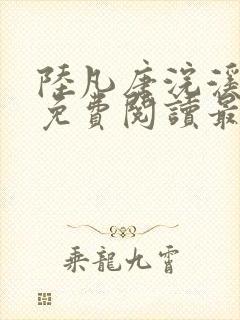 陸凡唐浣溪
免費閱讀最
乘龍九霄